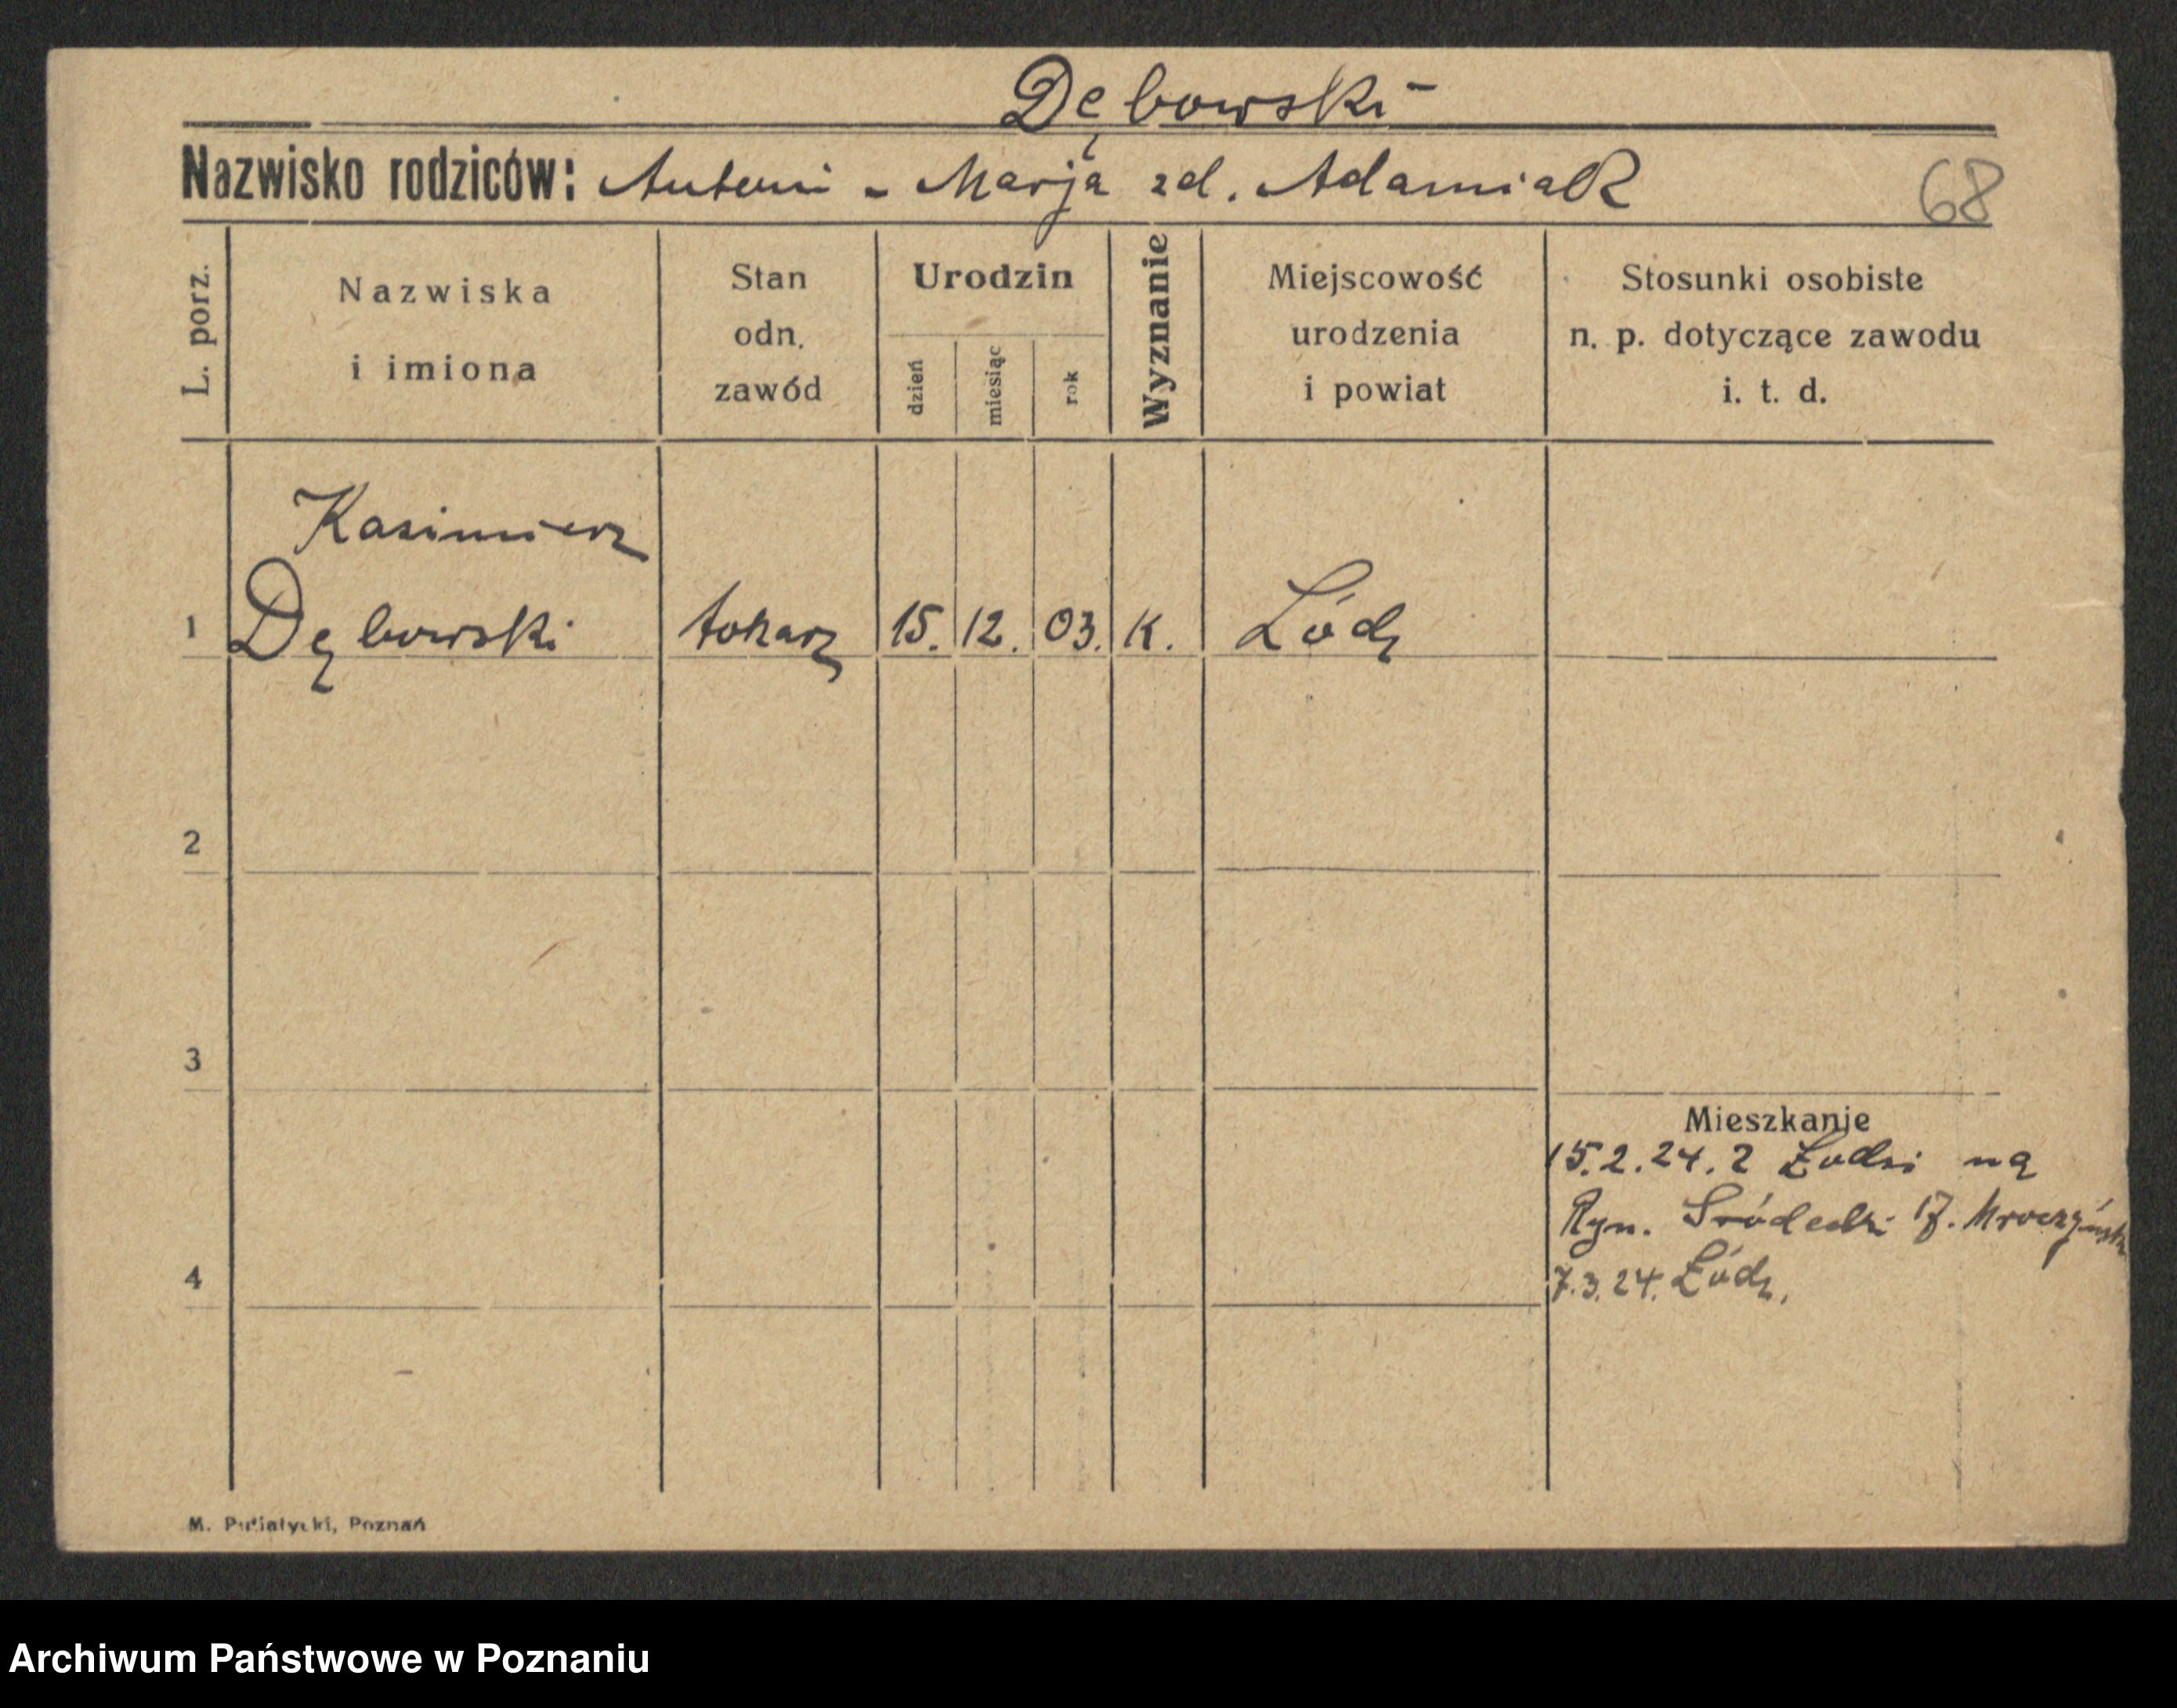 Dębowski
Nazwisko rodziców: Antoni - Marja zd. Adamiak
68
L. porz.
Nazwiska
i imiona
Stan
odn.
zawód
Urodzin
dzień
miesiąc
rok
Wyznanie
Miejscowość
urodzenia
i powiat
Stosunki osobiste
n. p. dotyczące zawodu
i. t. d.
Kasimierz
1 Dębowski tokarz 15. 12. 03. K. Łódz
2
3
4
Mieszkanie
15.2.24. z Łodzi na
Ryn. Śródecki 17.
7.3.24. Łódz.
M. Putiatycki, Poznań
Archiwum Państwowe w Poznaniu